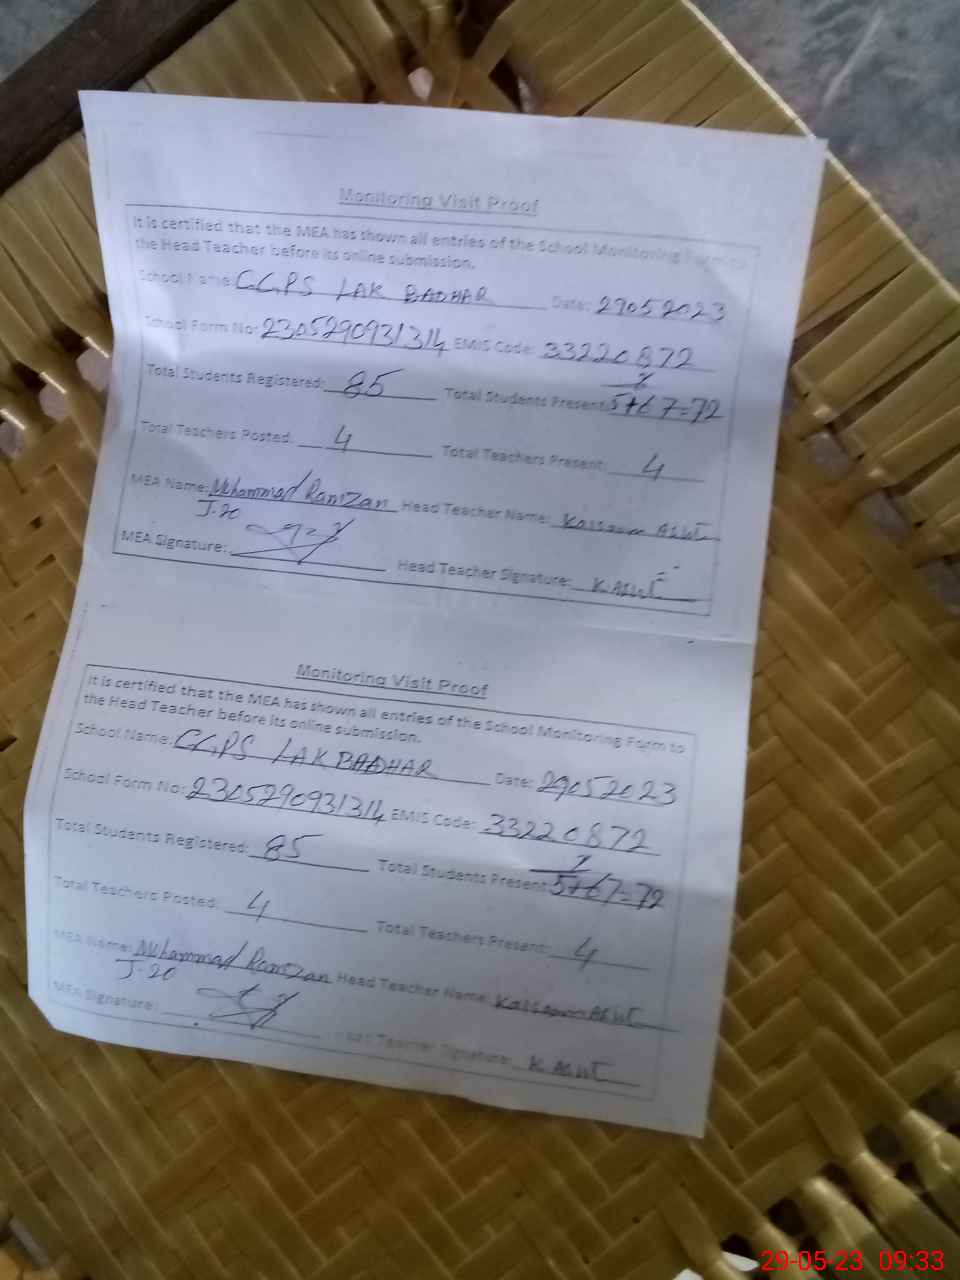 Monitoring Visit Proof
It is certified that the MEA has shown all entries of the School Monitoring Form to
the Head Teacher before its online submission.
School Name: GGPS LAK BADHAR Date: 29052023
School Form No: 2305290931314 EMIS Code: 33220872
Total Students Registered: 85 Total Students Present: 5+67=72
Total Teachers Posted: 4 Total Teachers Present: 4
MEA Name: Muhammad Ramzan Head Teacher Name: Kalsoom
J-20
MEA Signature: Head Teacher Signature: K.
Monitoring Visit Proof
It is certified that the MEA has shown all entries of the School Monitoring Form to
the Head Teacher before its online submission.
School Name: GGPS LAK BADHAR Date: 29052023
School Form No: 2305290931314 EMIS Code: 33220872
Total Students Registered: 85 Total Students Present: 5+67=72
Total Teachers Posted: 4 Total Teachers Present: 4
MEA Name: Muhammad Ramzan Head Teacher Name: Kalsoom
J-20
MEA Signature: Head Teacher Signature: K.
29-05-23 09:33